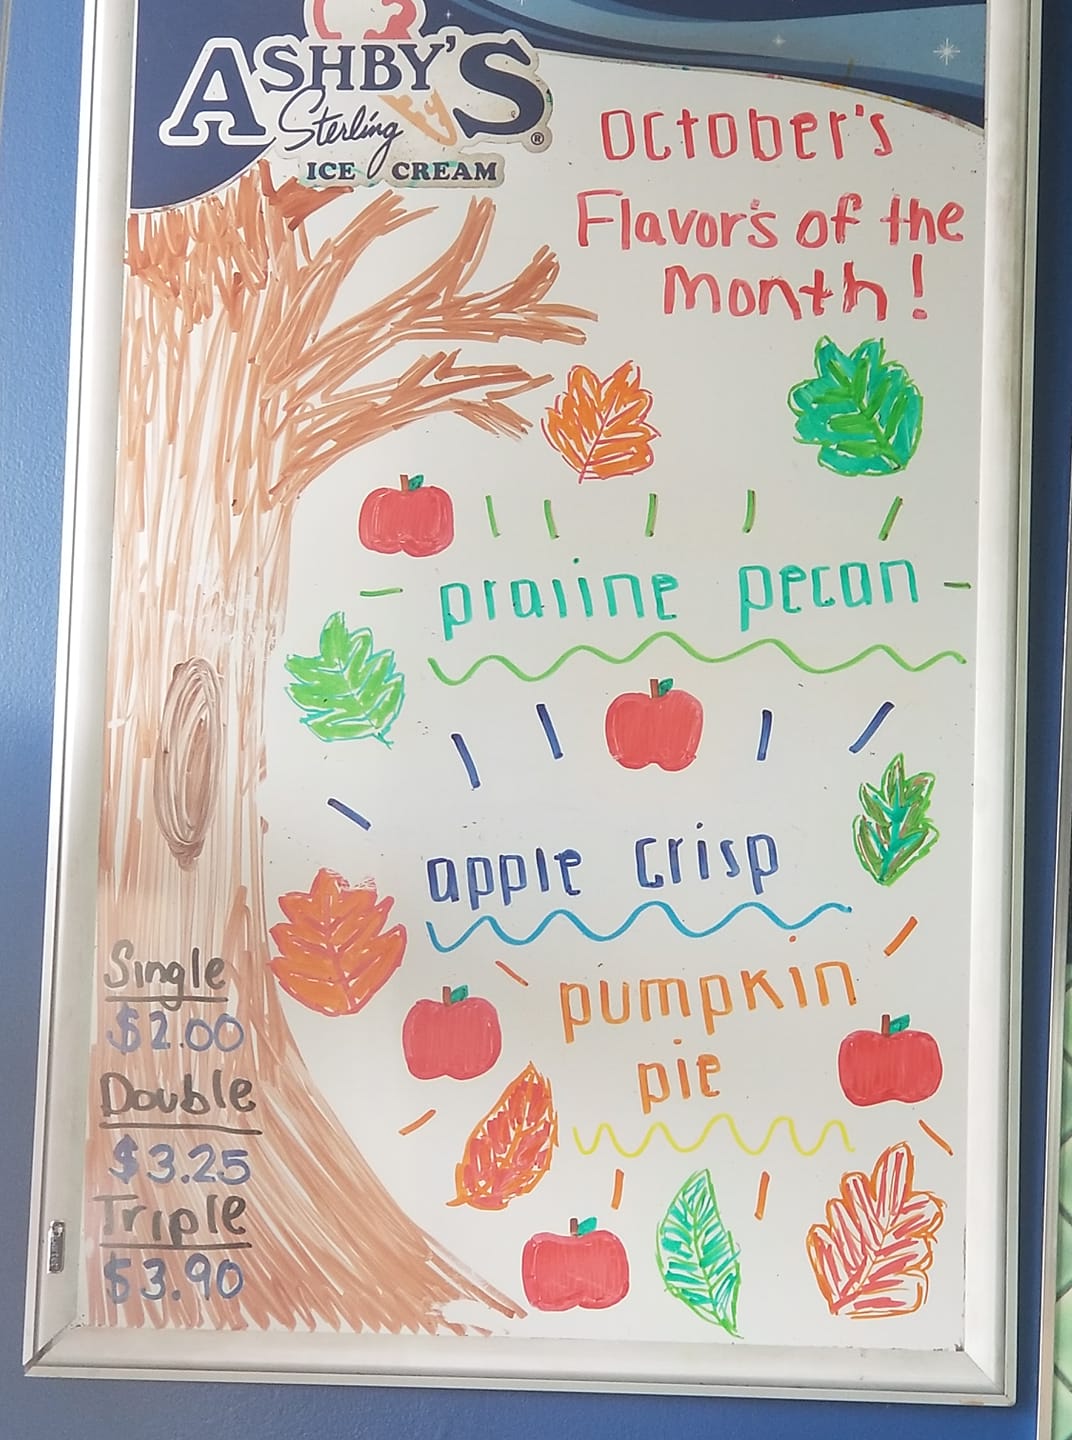 ASHBY'S
Sterling
ICE CREAM
®
October's
Flavor's of the
Month!
praline pecan
apple crisp
pumpkin
pie
Single
$2.00
Double
$3.25
Triple
$3.90